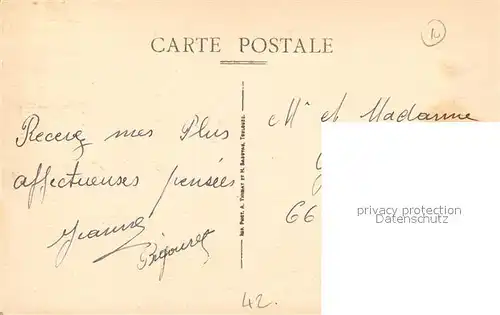 10
CARTE POSTALE
Recevez mes Plus
affectueuses pensées
Jeanne
Bigouret
IMP. PHOT. A. THIRIAT ET H. BASUYAU, TOULOUSE.
Mr et Madame
66
privacy protection
VINTAGE POSTCARDS
42.